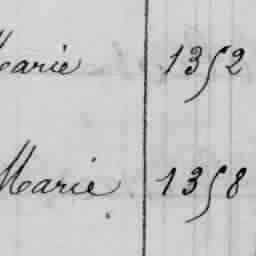 Marie 1352
Marie 1358